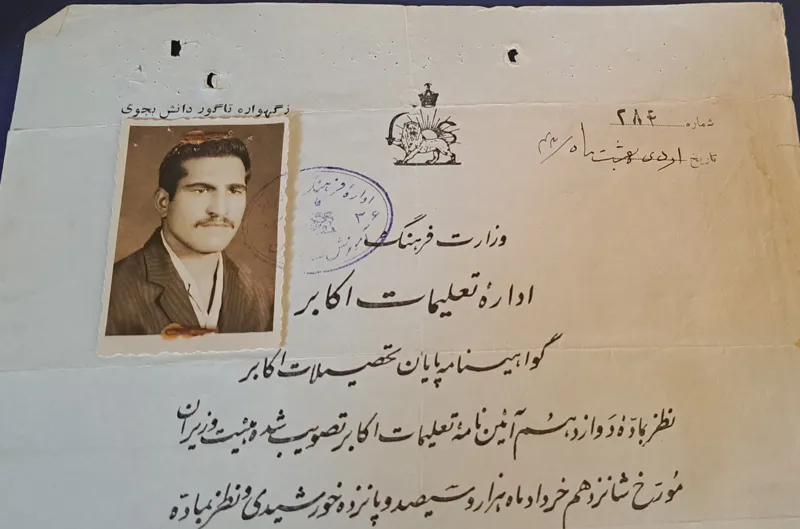 ز گهواره تا گور دانش بجوی
شماره ۲۸۴
تاریخ اردی بهشت ماه / ۴۳
اداره فرهنگ
۳۶
آموزش
وزارت فرهنگ
ادارهٔ تعلیمات اکابر
گواهینامه پایان تحصیلات اکابر
نظر بمادّهٔ دوازدهم آئین نامهٔ تعلیمات اکابر تصویب شده هیئت وزیران
مورّخ شانزدهم خرداد ماه هزار و سیصد و پانزده خورشیدی و نظر بمادّه